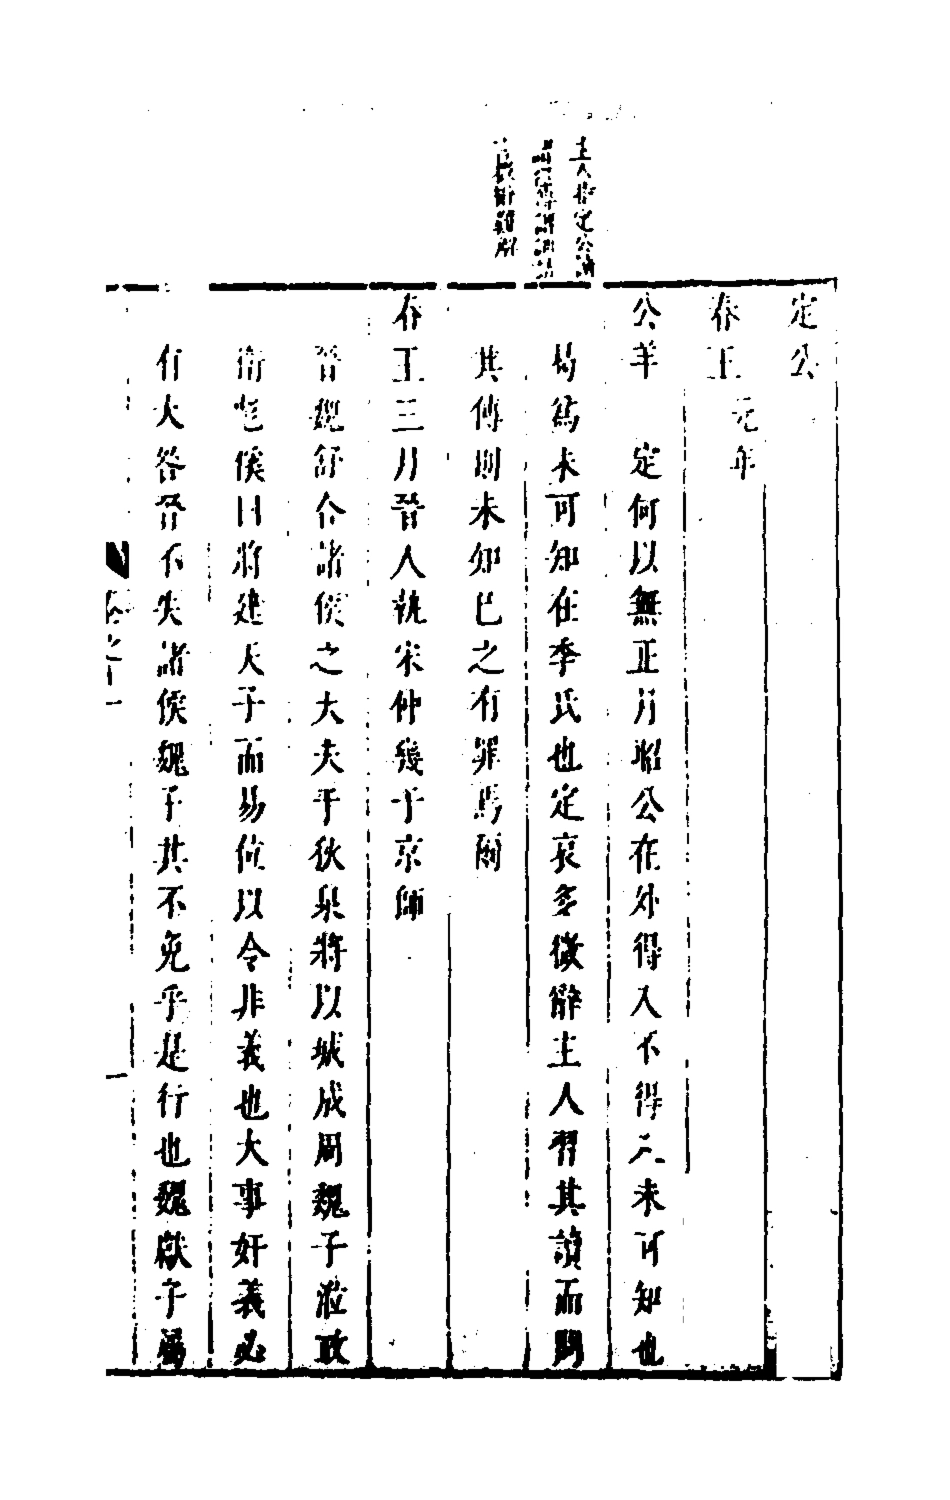 主人指定公讀
謂經傳謂訓詁
定公
春王元年
公羊　定何以無正月昭公在外得入不得入未可知也
曷為未可知在季氏也定哀多微辭主人習其讀而問
其傳則未知己之有罪焉爾
春王三月晉人執宋仲幾于京師
晉魏舒合諸侯之大夫于狄泉將以城成周魏子涖政
衛彪傒曰將建天子而易位以令非義也大事奸義必
有大咎晉不失諸侯魏子其不免乎是行也魏獻子屬
卷之十一
一